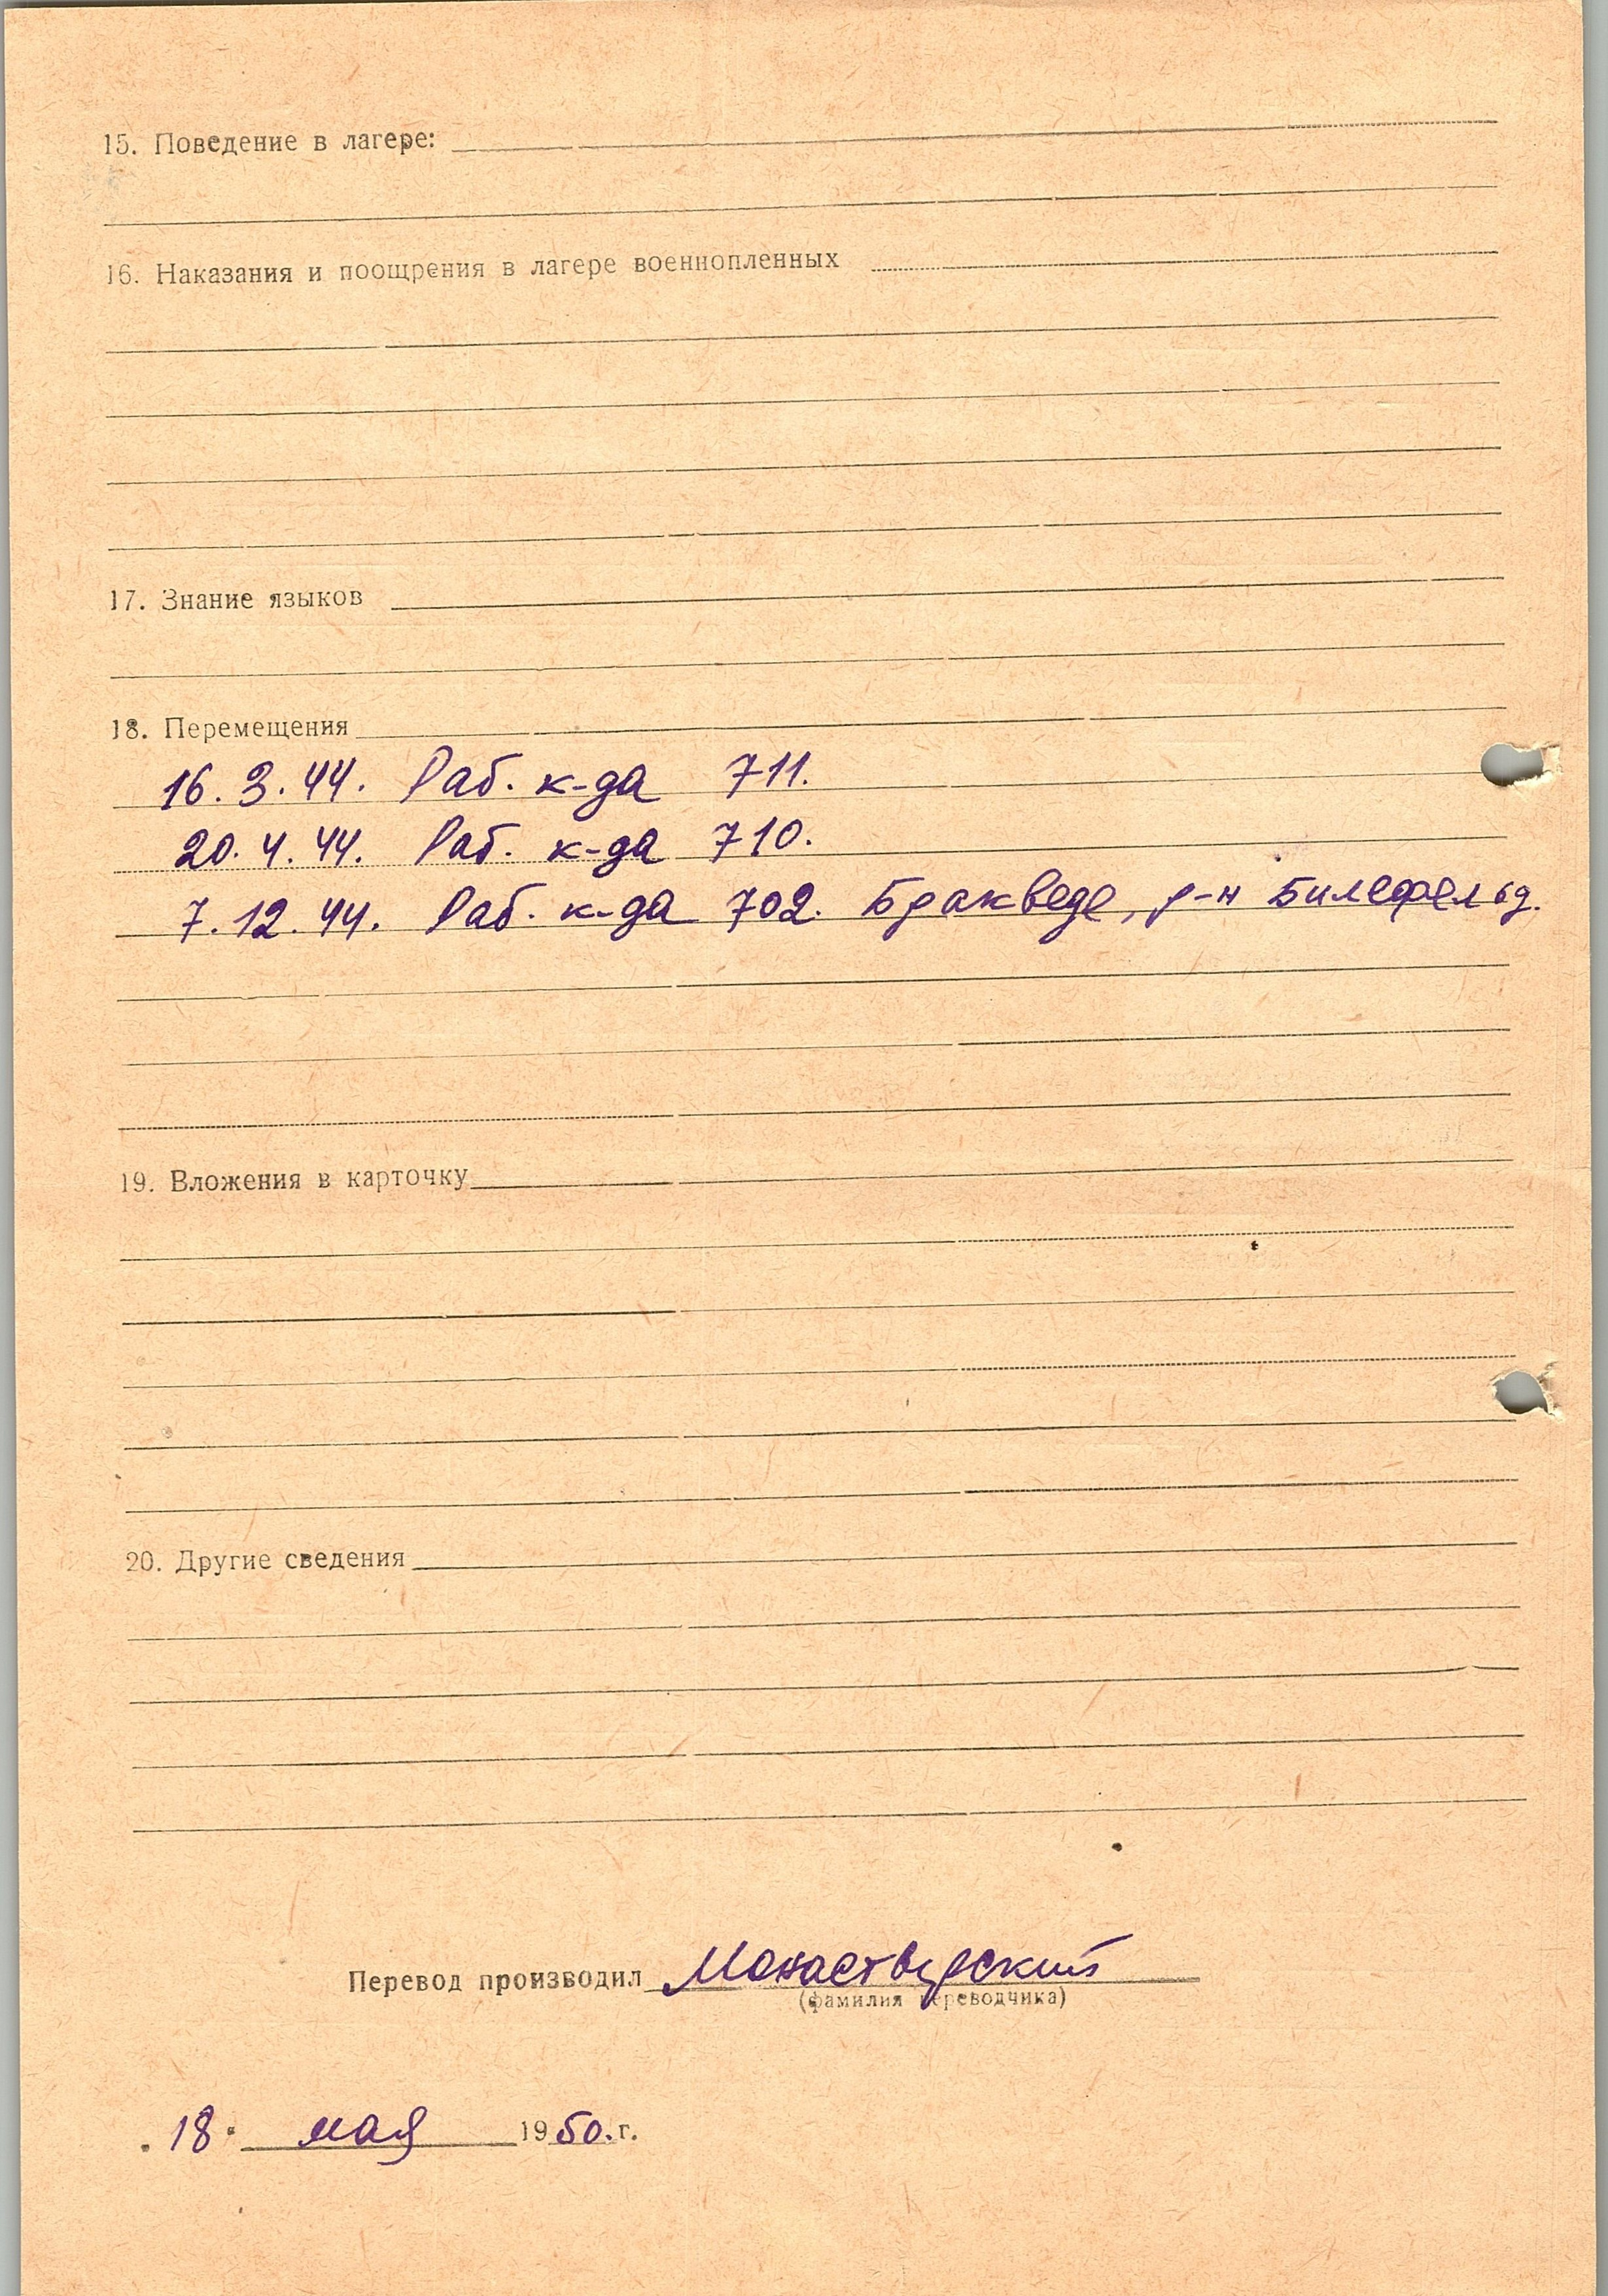 15. Поведение в лагере:
16. Наказания и поощрения в лагере военнопленных
17. Знание языков
18. Перемещения
16. 3. 44. Раб. к-да 711.
20. 4. 44. Раб. к-да 710.
7. 12. 44. Раб. к-да 702. Бракведе, р-н Билефельд.
19. Вложения в карточку
20. Другие сведения
Перевод производил Монастырский
(фамилия переводчика)
"18" мая 1950. г.